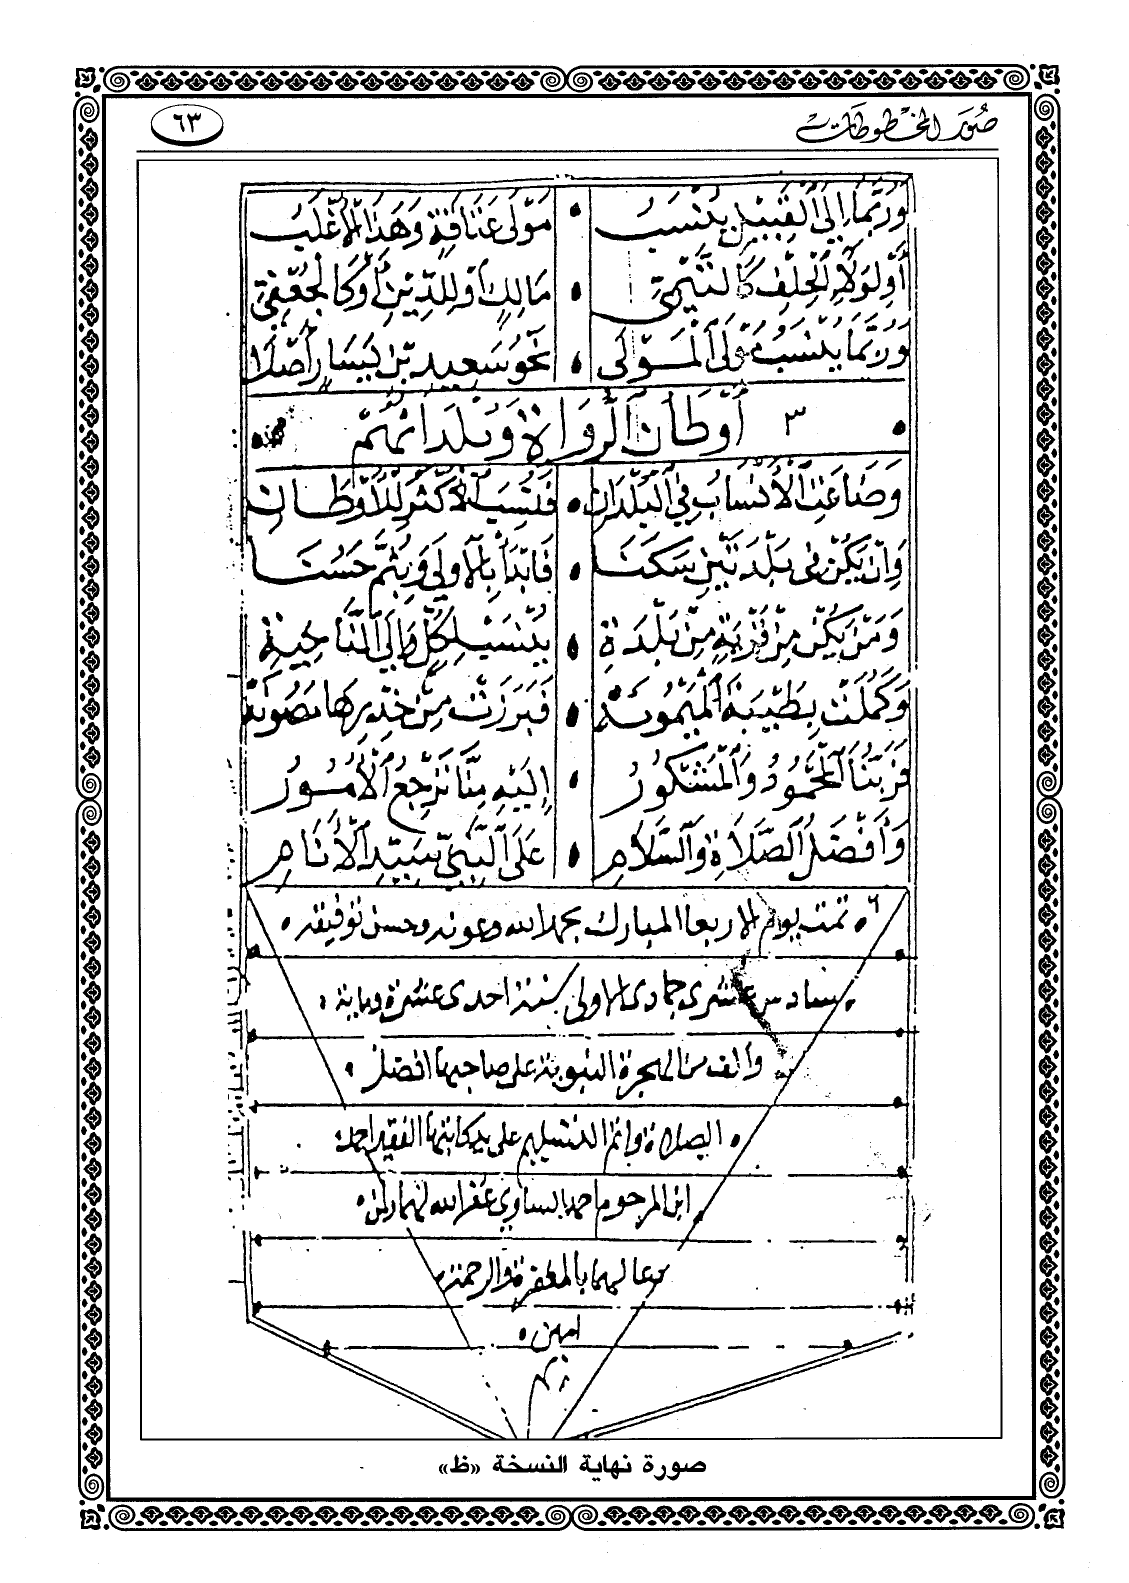 صُوَر المخطُوطات
٦٣
وَرُبَّمَا إِلَى الْقَبِيْلِ يُنْسَبُ • مَوْلَى عَتَاقَةٍ وَهَذَا الْأَغْلَبُ
أَوْ لِوَلَاءِ الْحِلْفِ كَالتَّيْمِيِّ • مَالِكٍ أَوْ لِلدِّيْنِ أَوْ كَالْجُعْفِيِّ
وَرُبَّمَا يُنْسَبُ مَوْلَى الْمَوْلَى • نَحْوُ سَعِيْدِ بْنِ يَسَارٍ أَصْلَا
أَوْطَانُ الرُّوَاةِ وَبُلْدَانُهُمْ
وَضَاعَتِ الْأَنْسَابُ فِي الْبُلْدَانِ • فَنُسِبَ الْأَكْثَرُ لِلْأَوْطَانِ
وَإِنْ يَكُنْ فِي بَلْدَتَيْنِ سَكَنَا • فَابْدَأْ بِالْأُولَى وَبِثُمَّ حَسُنَا
وَمَنْ يَكُنْ مِنْ قَرْيَةٍ مِنْ بَلْدَةِ • يُنْسَبْ لِكُلٍّ وَإِلَى النَّاحِيَةِ
وَكَمُلَتْ بِطَيْبَةَ الْمَيْمُونَهْ • فَبَرَزَتْ مِنْ خِدْرِهَا مَصُونَهْ
فَرَبُّنَا الْمَحْمُودُ وَالْمَشْكُورُ • إِلَيْهِ مِنَّا تَرْجِعُ الْأُمُورُ
وَأَفْضَلُ الصَّلَاةِ وَالسَّلَامِ • عَلَى النَّبِيِّ سَيِّدِ الْأَنَامِ
تمت يوم الاربعا المبارك بحمد الله وعونه وحسن توفيقه
سادس عشرى جمادى الاولى سنة احدى عشرة وماية
والف من الهجرة النبوية على صاحبها افضل
الصلاة واتم التسليم على يد كاتبها الفقير احمد
ابن المرحوم احمد غفر الله لهما ولمن
دعا لهما بالمغفرة والرحمة
امين
صورة نهاية النسخة «ظ»